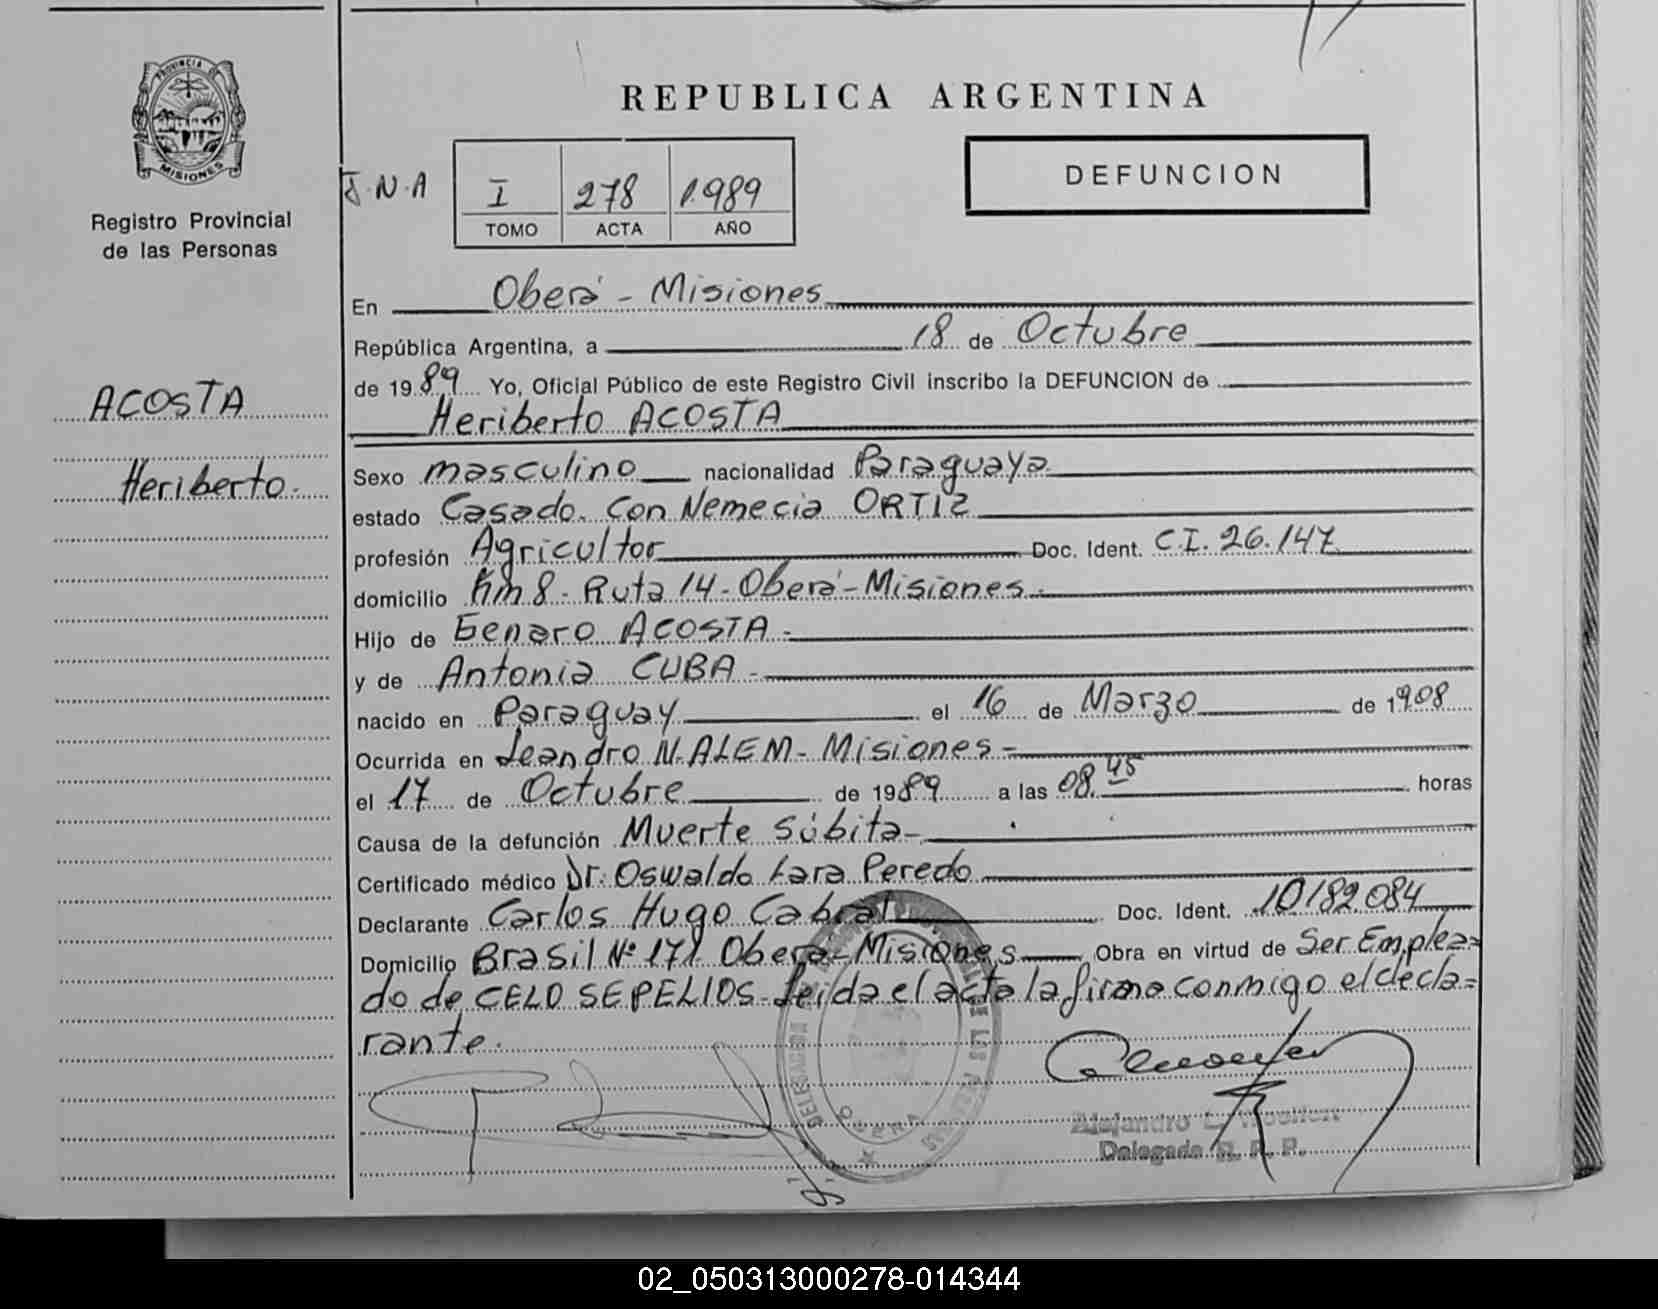 REPUBLICA ARGENTINA
PROVINCIA DE
MISIONES
Registro Provincial
de las Personas
J.N.A
I 278 1.989
TOMO ACTA AÑO
DEFUNCION
ACOSTA
Heriberto.
En Oberá - Misiones
República Argentina, a 18 de Octubre
de 1989 Yo, Oficial Público de este Registro Civil inscribo la DEFUNCION de
Heriberto ACOSTA
Sexo masculino nacionalidad Paraguaya
estado Casado. Con Nemecia ORTIZ
profesión Agricultor Doc. Ident. C.I. 26.147
domicilio Km 8 - Ruta 14 - Oberá - Misiones.
Hijo de Genaro ACOSTA -
y de Antonia CUBA -
nacido en Paraguay el 16 de Marzo de 1908
Ocurrida en Leandro N. ALEM - Misiones -
el 17 de Octubre de 1989 a las 08.45 horas
Causa de la defunción Muerte Súbita -
Certificado médico Dr. Oswaldo Lara Peredo
Declarante Carlos Hugo Cabral Doc. Ident. 10.182.084
Domicilio Brasil Nº 171 Oberá - Misiones Obra en virtud de Ser Emplea=
do de CELO SEPELIOS. Leída el acta la firma conmigo el decla=
rante.
DELEGACION
OBERA
Alejandro L.
Delegado R. P. P.
02_050313000278-014344